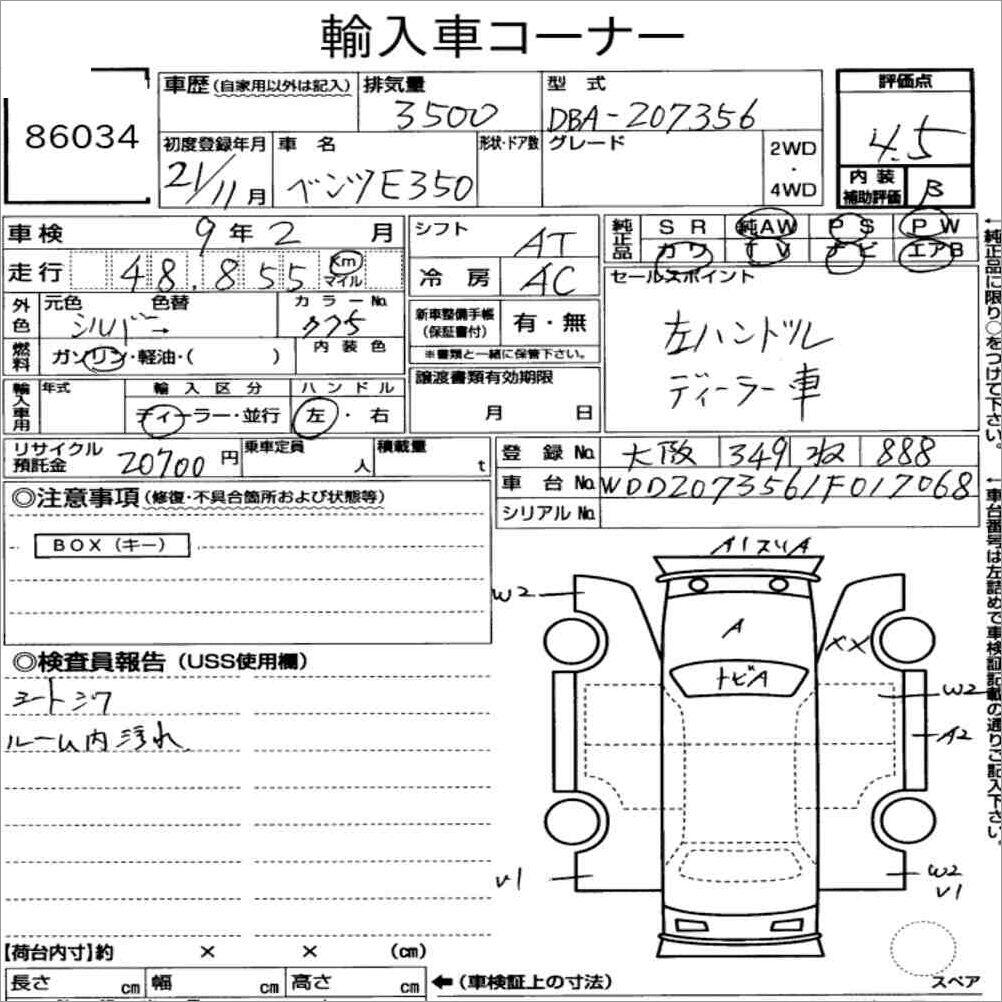 輸入車コーナー
86034
車歴(自家用以外は記入) 排気量 3500 型式 DBA-207356
評価点 4.5
初度登録年月 21/11月 車名 ベンツE350 形状・ドア数 グレード 2WD・4WD
内装補助評価 B
車検 9年2月 シフト AT 純正品 SR 純AW PS PW
カワ TV ナビ エアB
走行 48.855 Km マイル 冷房 AC セールスポイント
外色 元色 シルバー→ 色替 カラーNo. 775
新車整備手帳(保証書付) 有・無
※書類と一緒に保管下さい。
左ハンドル
ディーラー車
燃料 ガソリン・軽油・( ) 内装色
輸入車用 年式 輸入区分 ハンドル
ディーラー・並行 左・右
譲渡書類有効期限
月 日
リサイクル預託金 20700円 乗車定員 人 積載量 t
登録No. 大阪 349 ね 888
車台No. WDD2073561F017068
シリアルNo.
◎注意事項(修復・不具合箇所および状態等)
BOX(キー)
◎検査員報告(USS使用欄)
シートシワ
ルーム内汚れ
A1スリA
W2
A
XX
トビA
W2
A2
V1
W2
V1
スペア
【荷台内寸】約 × × (cm)
長さ cm 幅 cm 高さ cm ←(車検証上の寸法)
←純正品に限り○をつけて下さい。
←車台番号は左詰めで車検証記載の通りご記入下さい。